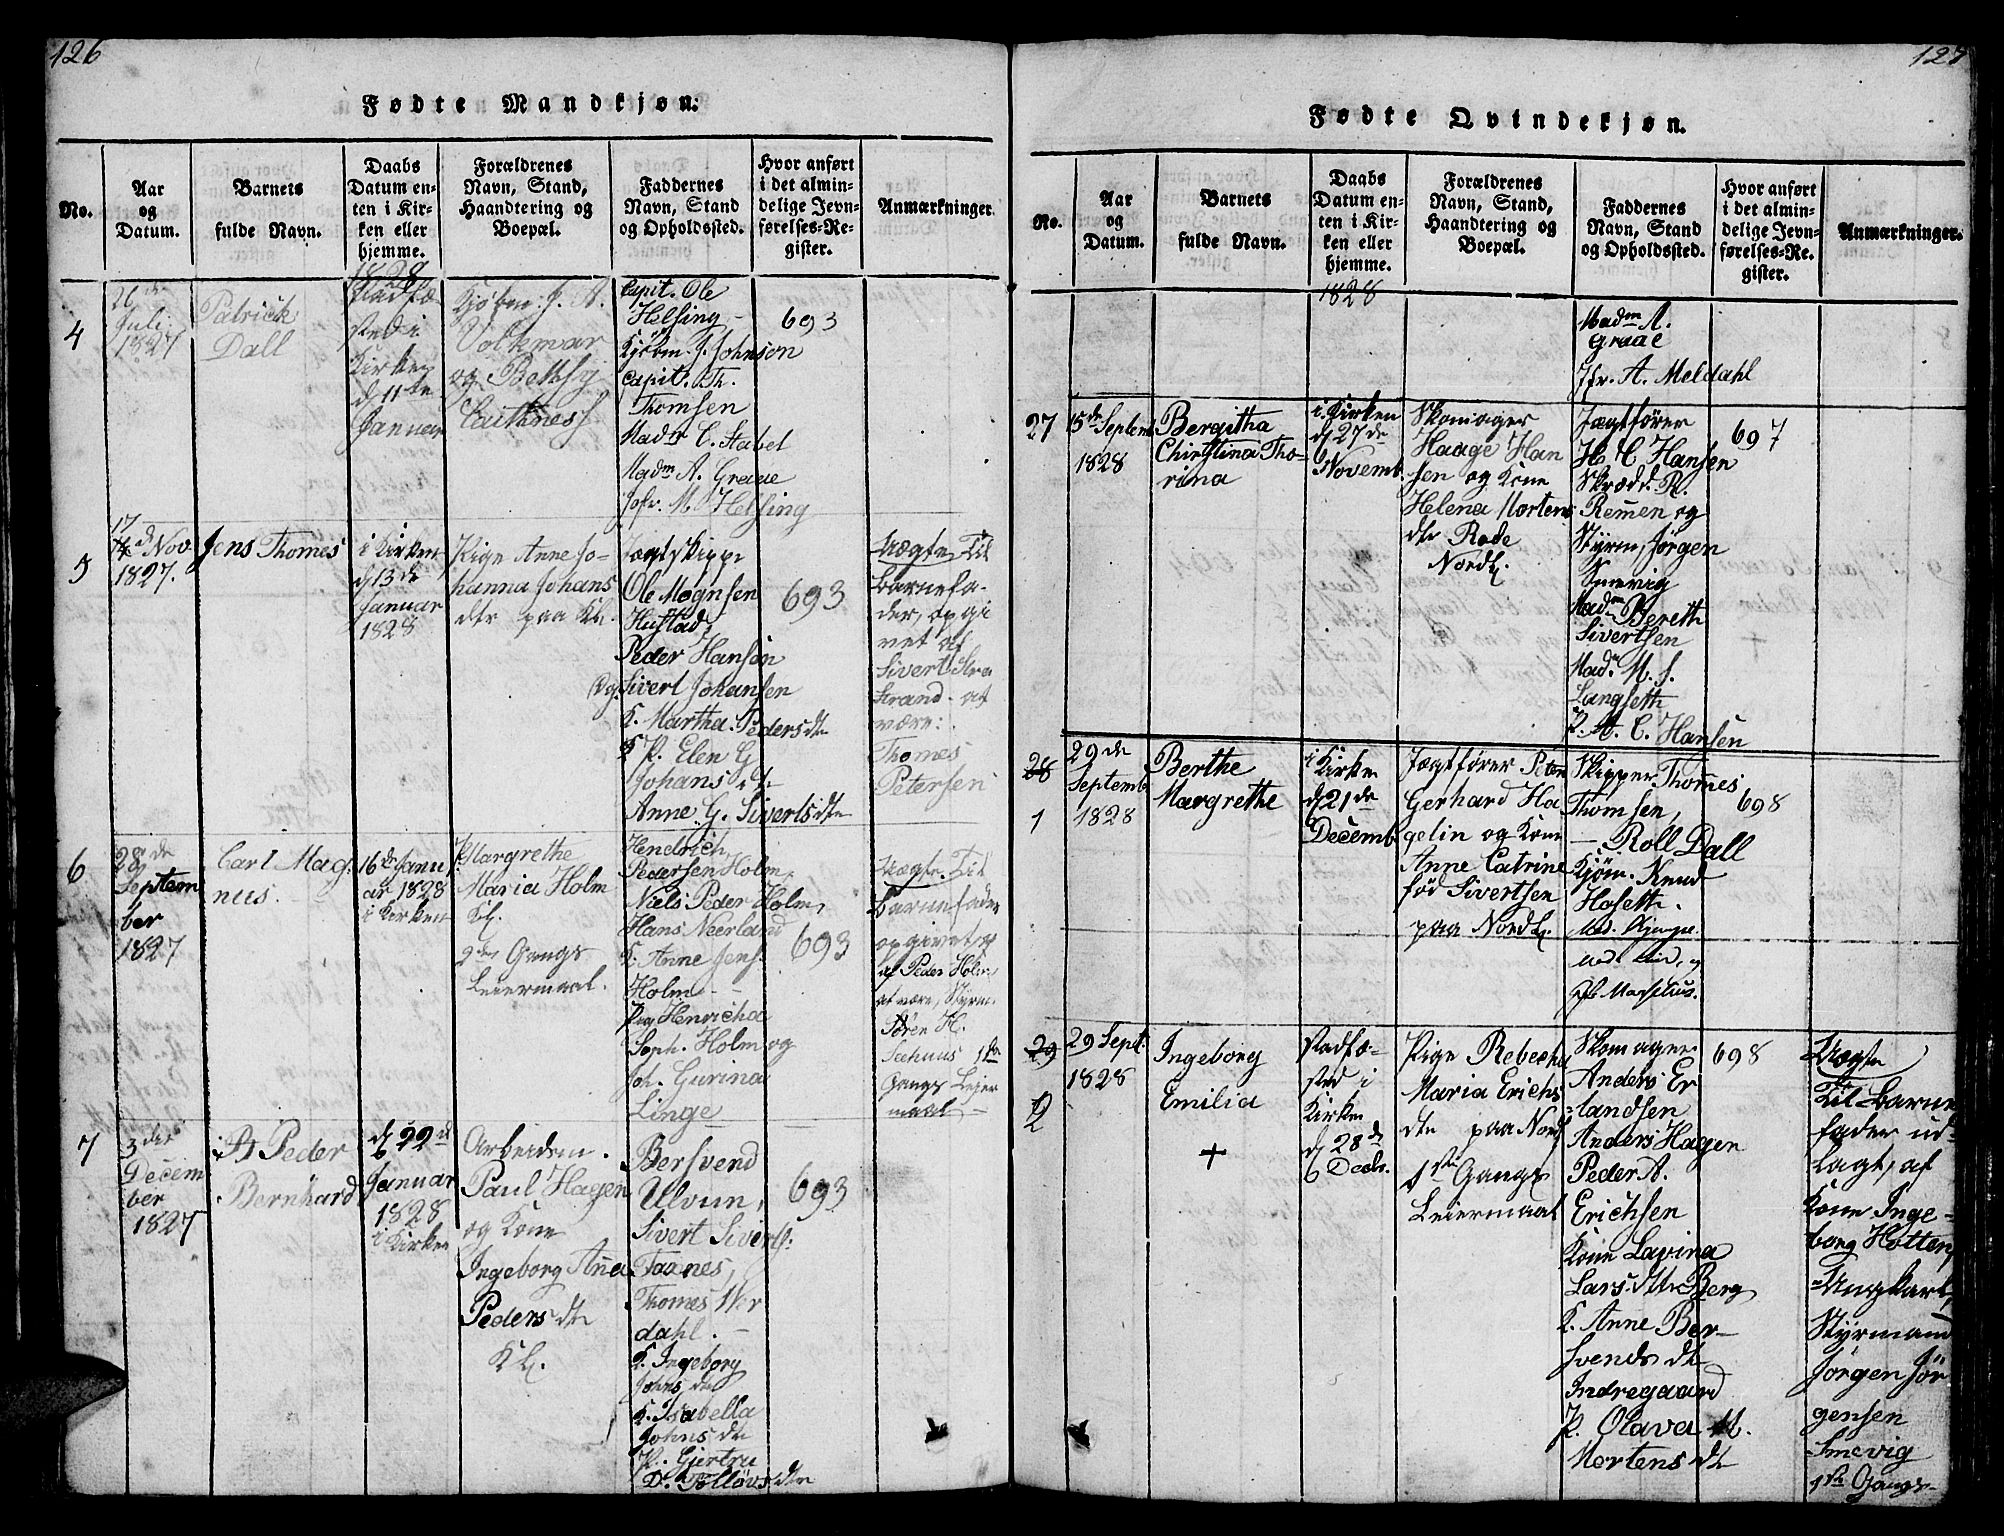 126
Fødte Mandkjøn.
No.
Aar
og
Datum.
Barnets
fulde Navn.
Daabs
Datum en-
ten i Kir-
ken eller
hjemme.
Forældrenes
Navn, Stand,
Haandtering og
Boepæl.
Faddernes
Navn, Stand
og Opholdssted.
Hvor anført
i det almin-
delige Jevn-
førelses-Re-
gister.
Anmærkninger
4
26de
Juli
1827
Patrick
Dall
1828
Stadfæ
sted i
Kirken
d 11te
Januar
Kjøbm. J. A.
Volkmar
og Bethsy
Caithness
Capit. Ole
Helsing
Kjøbm. J. Johnson
Capit. Th.
Thomsen
Madm C. Stabel
Madm A. Graae
Jofr. M. Helsing
693
5
17
d Nov.
1827.
Jens Thomes
i Kirken
d 13de
Januar
1828
Pige Anne Jo-
hanna Johans
dtr paa Kl.
Jægtskipp.
Ole Mognsen
Hustad,
Peder Hanson
og Sivert Johansen
K. Martha Pedersdtr
P. Elen G
Johansdtr
Anne G. Sivertsdtr
693
Uægte. Til
Barnefa-
der, opgi
vet af
Sivert Stra
Strand at
være:
Thomes
Petersen
6
28de
Septem
ber
1827
Carl Mag-
nus.
16de Janu
ar 1828
i Kirken
P. Margrethe
Maria Holm
Kl.
2den Gangs
Leiermaal.
Hendrich
Pedersen Holm,
Niels Peder Holm,
Hans Neerland
K. Anne Jens.
Holm
Pig Henricha
Soph. Holm og
Joh. Gurina
Linge
693
Uægte. Til
Barnefader
opgivet
af Peder Holm
at være, Styrm.
Søren H.
1ste
Gangs Leier
maal
7
3die
Decem
ber
1827
Peder
Bernhard
d 22de
Januar
1828
i Kirken
Arbeidsm.
Paul Hagen
og Kone
Ingeborg Ana
Pedersdtr
Kl.
Bersvend
Ulvun,
Sivert Siverts.
Taxnes,
Thomes Nor
dahl.
K. Ingeborg
Johnsdtr
K. Isabella
Johnsdtr
P. Gjertru
D. Tolløvsdtr
693
127
Fødte Qvindekjøn.
No.
Aar
og
Datum.
Barnets
fulde Navn.
Daabs
Datum en-
ten i Kir-
ken eller
hjemme.
Forældrenes
Navn, Stand,
Haandtering og
Boepæl.
Faddernes
Navn, Stand
og Opholdssted.
Hvor anført
i det almin-
delige Jevn-
førelses-Re-
gister.
Anmærkninger.
1828
Madm A.
Graae
Jfr. A. Meldahl
27
15de Septemb
1828
Bergitha
Chirstina Tho-
rina
i Kirken
d 27de
Novemb.
Skomager
Haage Han
sen og Kone
Helena Mortens
dtr Rode
Nordl.
Jægtfører
H. C. Hansen
Skrædd. R.
Remen og
Styrm. Jørgen
Smevig
Madm Bereth
Sivertsen
Madm M. S.
Langseth
P. A. C. Hansen
697
28
1
29de
Septemb
1828
Berthe
Margrethe
i Kirken
d 21de
Decemb.
Jægtfører Peter
Gerhard Ha
gelin og Kone
Anne Catrine
fød Sivertsen
paa Nordl.
Skipper Thomes
Thomsen,
— Roll Dall
Kjøm. Knud
Hoseth.
698
29
2
29 Sept.
1828
Ingeborg
Emilia
+
Stadfæ-
sted i
Kirken
d 28de
Decbr.
Pige Rebecha
Maria Erichs
dtr paa Nordl
1ste Gangs
Leiermaal
Skomager
Anders Er
landsen
Anders Hagen
Peder A.
Erichsen
Kone Lavina
Lars. Berg
K. Anne Ber-
svendsdtr
Indregaard
P. Olava M.
Mortensdtr
698
Uægte
Til Barne
fader ud-
lagt, af
Kone Inge-
borg Hotten,
Ungkarl,
Styrmand
Jørgen Jør
gensen
Smevig
1ste Gangs